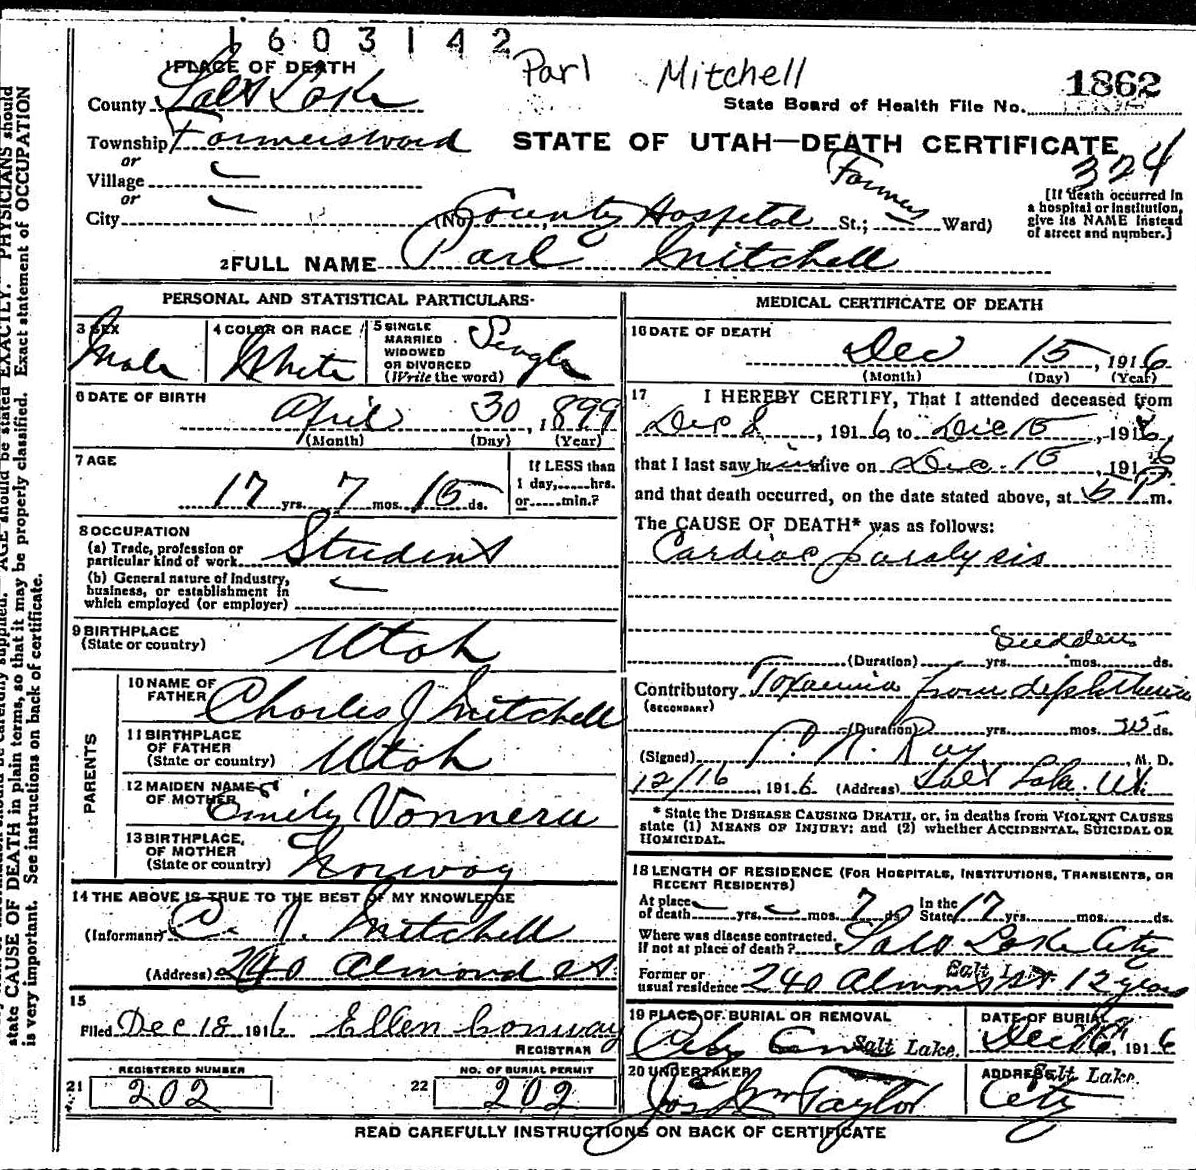 1603142
Parl Mitchell
1862
1 PLACE OF DEATH
County Salt Lake
State Board of Health File No.
Township Farmersward
STATE OF UTAH—DEATH CERTIFICATE
324
or
Village
or
City (No. County Hospital St.; Farmers Ward)
[If death occurred in a hospital or institution, give its NAME instead of street and number.]
2 FULL NAME Parl Mitchell
PERSONAL AND STATISTICAL PARTICULARS
3 SEX Male
4 COLOR OR RACE White
5 SINGLE MARRIED WIDOWED OR DIVORCED (Write the word) Single
6 DATE OF BIRTH April 30, 1899
(Month) (Day) (Year)
7 AGE 17 yrs. 7 mos. 15 ds.
If LESS than 1 day,......hrs. or......min.?
8 OCCUPATION
(a) Trade, profession or particular kind of work Student
(b) General nature of industry, business, or establishment in which employed (or employer)
9 BIRTHPLACE (State or country) Utah
PARENTS
10 NAME OF FATHER Charles J Mitchell
11 BIRTHPLACE OF FATHER (State or country) Utah
12 MAIDEN NAME OF MOTHER Emily
13 BIRTHPLACE, OF MOTHER (State or country) Norway
14 THE ABOVE IS TRUE TO THE BEST OF MY KNOWLEDGE
(Informant) C. J. Mitchell
(Address) 240 Almond St
15
Filed Dec 18 1916 Ellen Conway
REGISTRAR
REGISTERED NUMBER
21 202
NO. OF BURIAL PERMIT
22 202
MEDICAL CERTIFICATE OF DEATH
16 DATE OF DEATH
Dec 15, 1916
(Month) (Day) (Year)
17 I HEREBY CERTIFY, That I attended deceased from
Dec 8, 1916 to Dec 15, 1916,
that I last saw him alive on Dec. 15, 1916,
and that death occurred, on the date stated above, at 6 P m.
The CAUSE OF DEATH* was as follows:
Cardiac paralysis
Sudden
(Duration) yrs. mos. ds.
Contributory Toxaemia from diphtheria
(SECONDARY)
(Duration) yrs. mos. ds.
(Signed) Ray, M. D.
12/16, 1916 (Address) Salt Lake. Ut.
* State the DISEASE CAUSING DEATH, or, in deaths from VIOLENT CAUSES state (1) MEANS OF INJURY; and (2) whether ACCIDENTAL, SUICIDAL OR HOMICIDAL.
18 LENGTH OF RESIDENCE (FOR HOSPITALS, INSTITUTIONS, TRANSIENTS, OR RECENT RESIDENTS)
At place of death yrs. mos. 7 ds. In the State 17 yrs. mos. ds.
Where was disease contracted, if not at place of death? Salt Lake City
Former or usual residence 240 Almond St Salt Lake 12 years
19 PLACE OF BURIAL OR REMOVAL
City Cem Salt Lake.
DATE OF BURIAL
Dec 16, 1916
20 UNDERTAKER
Jos Wm Taylor
ADDRESS
Salt Lake.
City
READ CAREFULLY INSTRUCTIONS ON BACK OF CERTIFICATE
AGE should be stated EXACTLY. PHYSICIANS should
state CAUSE OF DEATH in plain terms, so that it may be properly classified. Exact statement of OCCUPATION
is very important. See instructions on back of certificate.